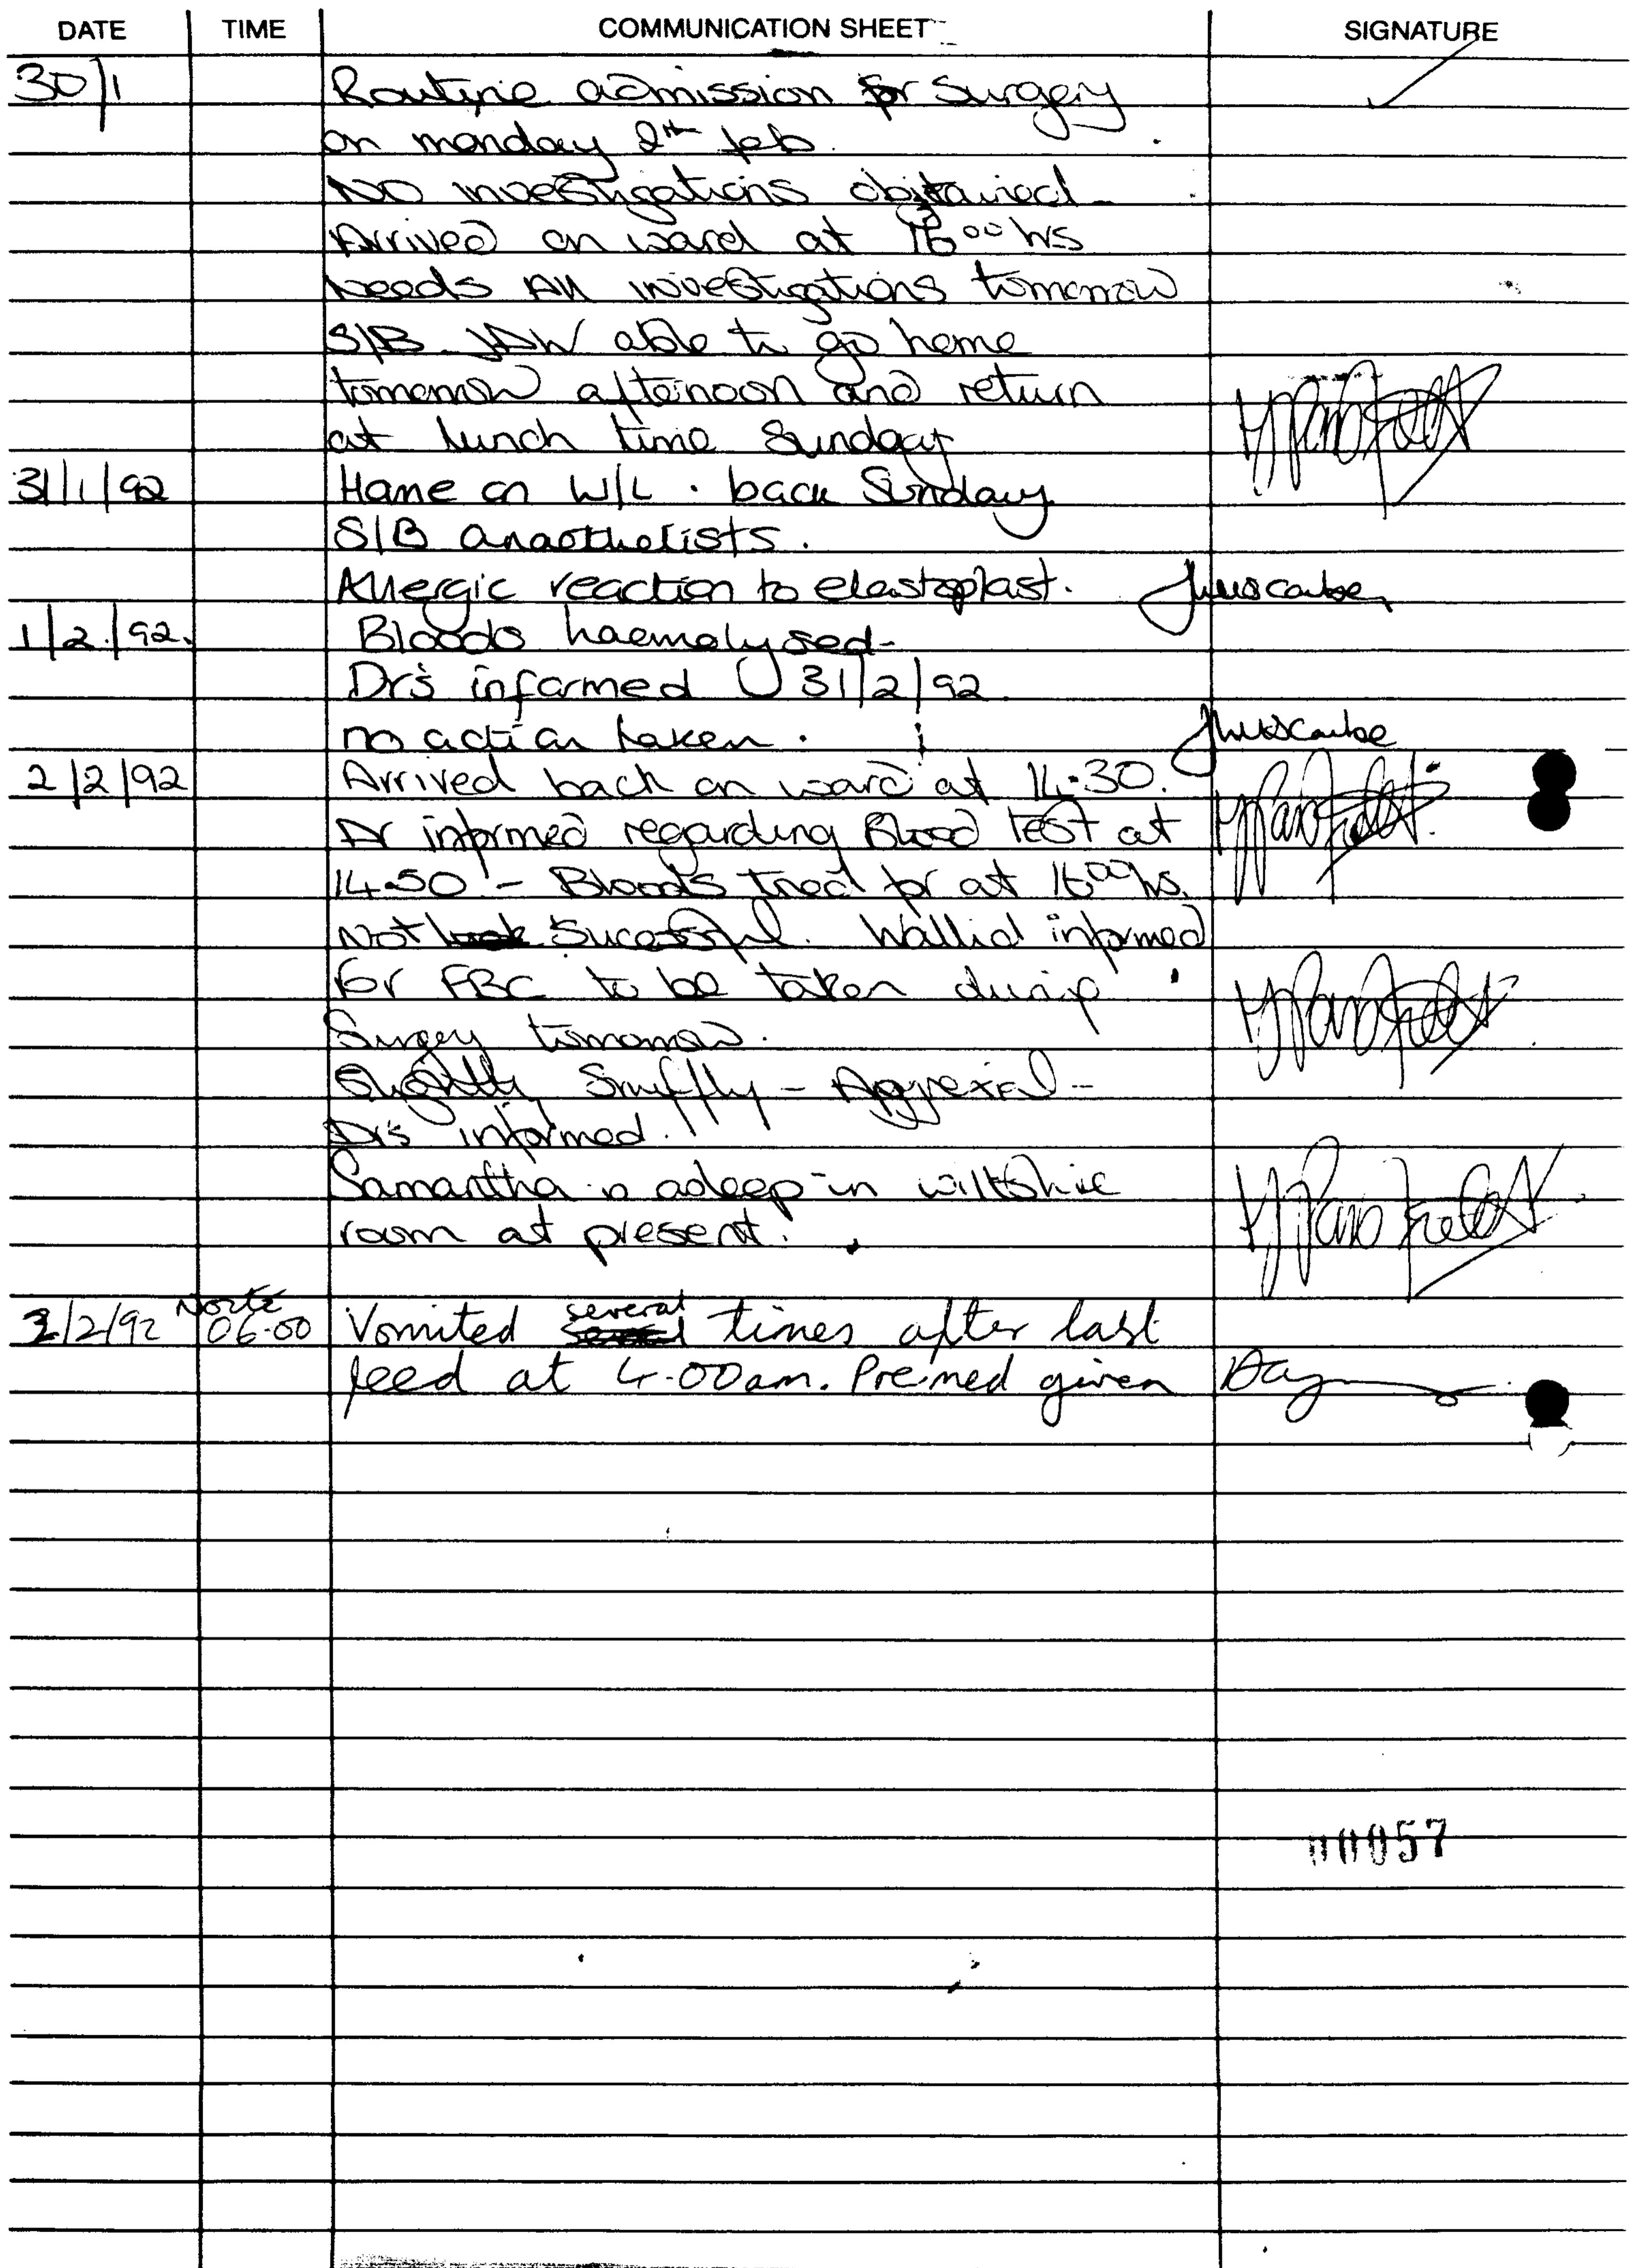 DATE TIME COMMUNICATION SHEET SIGNATURE
30/1 Routine admission for surgery
on monday 2nd feb.
No investigations obtained
Arrived on ward at 1600 hrs
Needs All investigations tomorrow
S/B JDW able to go home
tomorrow afternoon and return
at lunch time Sunday
31/1/92 Home on W/L . back Sunday
S/B anaesthetists.
Allergic reaction to elastoplast.
1/2/92. Bloods haemolysed
Drs informed 31/2/92
no action taken.
2/2/92 Arrived back on ward at 14.30.
Dr informed regarding Blood test at
14.50 - Bloods tried for at 1600 hrs.
Not Sucessful. Wallid informed
for FBC to be taken during
Surgey tomorrow.
Slightly Snuffly - Apyrexial -
Drs informed.
Samantha is asleep in wiltshire
room at present.
3/2/92 Nocte 06.00 Vomited several times after last
feed at 4.00am. Premed given
00057